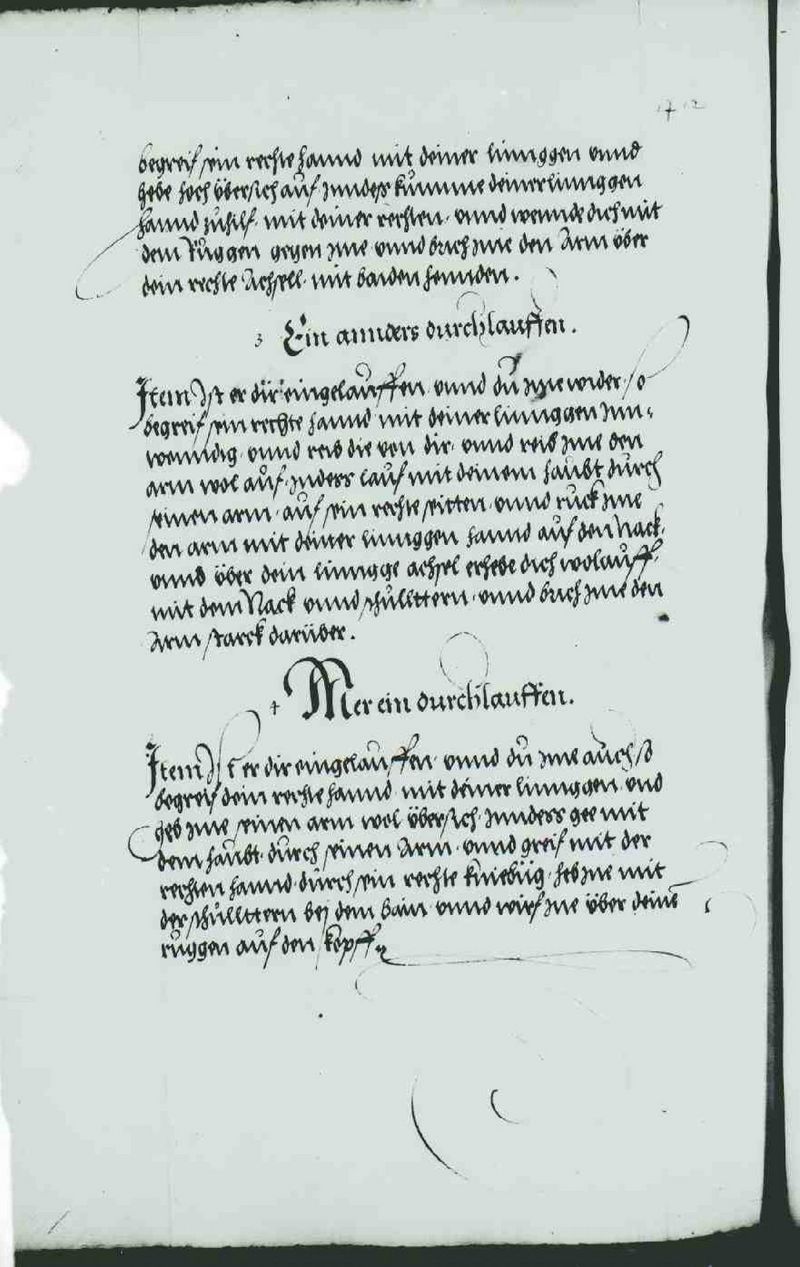 begreif sein rechte hannd mit deiner linnggen vnnd
hebe hoch übersich auf Inndes kumme deiner linnggen
hannd zuhilf mit deiner rechten vnnd wennde dich mit
dem Ruggen gegen Ime vnnd brich Ime den Arm über
dein rechte Achsell mit baiden hennden.
3 Ein annders durchlauffen.
Item Ist er dir eingelauffen vnnd du Ime wider so
begreif sein rechte hannd mit deiner linnggen Inn-
wenndig vnnd reib die von dir vnnd reib Ime den
arm wol auf Inndess lauf mit deinem haubt durch
seinen arm auf sein rechte seitten vnnd ruck Ime
den arm mit deiner linnggen hannd auf den Nack
vnnd über dein linngge achsel erhebe dich wol auff
mit dem Nack vnnd schullttern vnnd brich Ime den
Arm starck darüber.
4 Mer ein durchlauffen.
Item Ist er dir eingelauffen vnnd du Ime auch so
begreif dein rechte hannd mit deiner linnggen vnd
heb Ime seinen arm wol übersich Inndess gee mit
dem haubt durch seinen Arm vnnd greif mit der
rechten hannd durch sein rechte kniebüg heb Ine mit
der schullttern bej dem bain vnnd wirf Ine über deine
ruggen auf den kopff